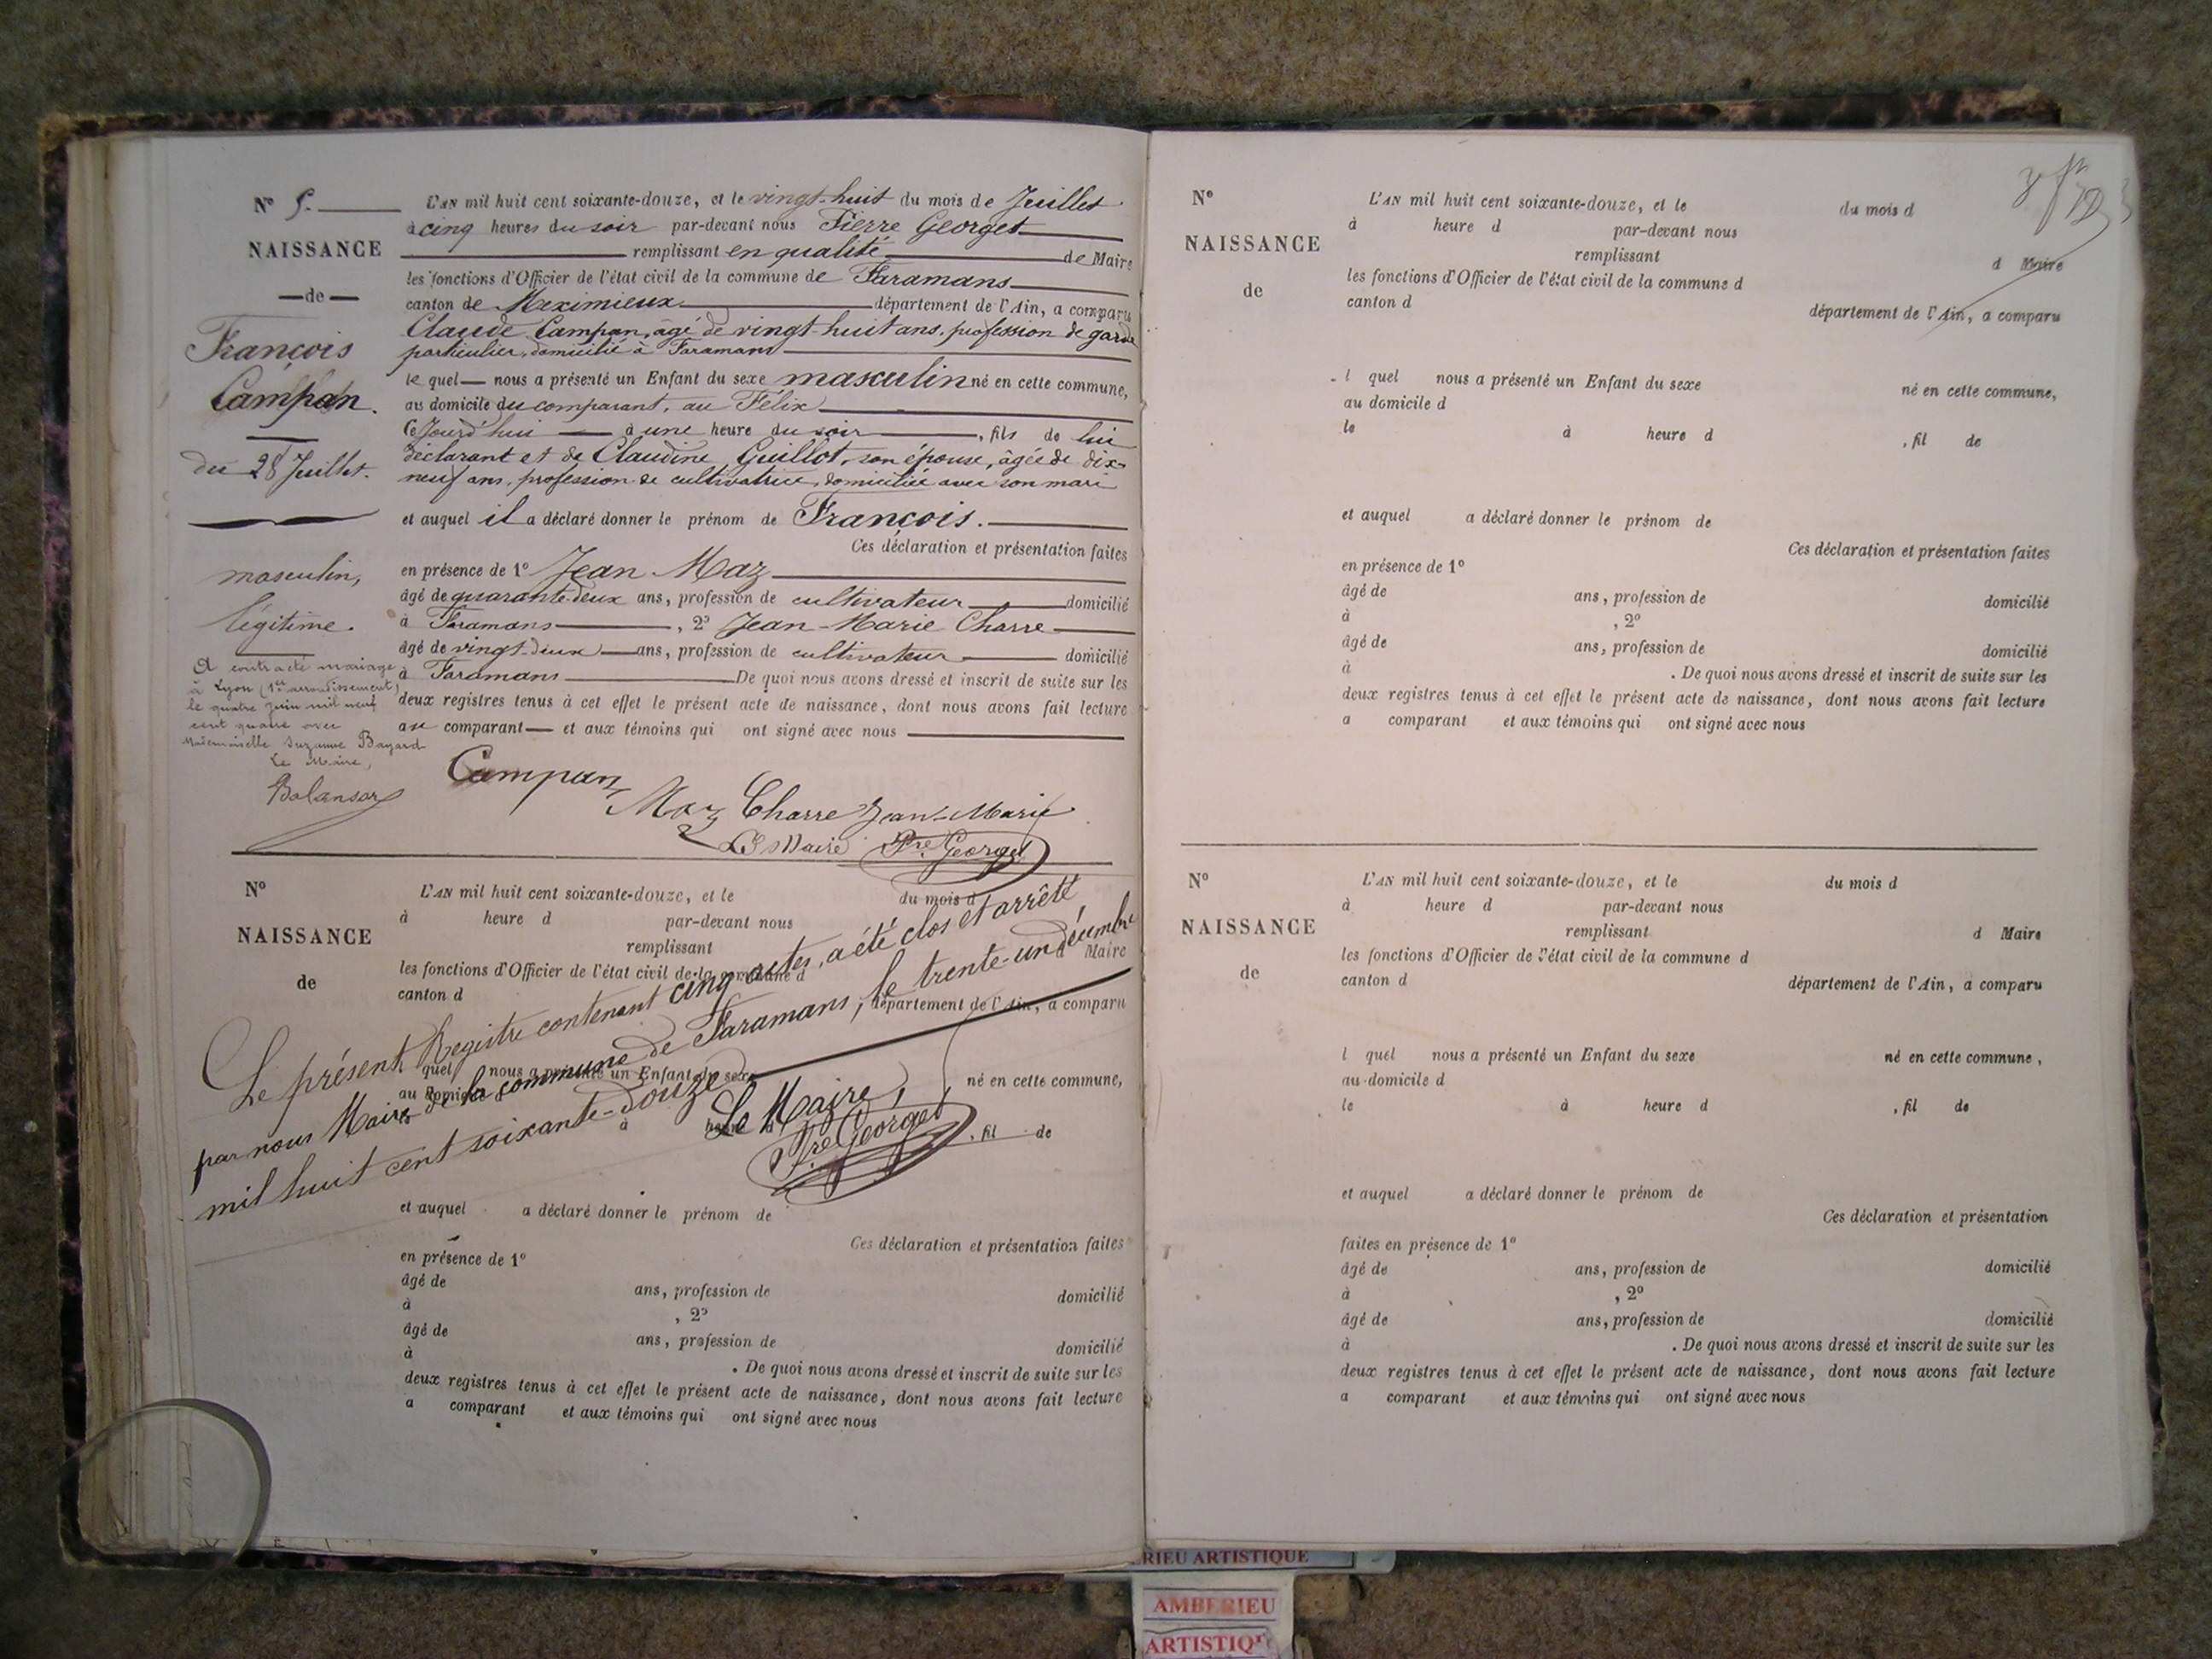 N° 5.
NAISSANCE
de
François
Campan.
du 28 Juillet.
masculin,
légitime.
A contracté mariage
à Lyon (1er arrondissement)
le quatre juin mil neuf
cent quatre avec
Mademoiselle Suzanne Bayard
Le Maire,
L'AN mil huit cent soixante-douze, et le vingt-huit du mois de Juillet
à cinq heures du soir par-devant nous Pierre Georget
remplissant en qualité de Maire
les fonctions d'Officier de l'état civil de la commune de Faramans
canton de Meximieux département de l'Ain, a comparu
Claude Campan, âgé de vingt-huit ans, profession de garde
particulier, domicilié à Faramans
lequel nous a présenté un Enfant du sexe masculin né en cette commune,
au domicile du comparant, au Félix
Ce Jourd'hui à une heure du soir, fils de lui
déclarant et de Claudine Guillot, son épouse, âgée de dix-
neuf ans, profession de cultivatrice, domiciliée avec son mari
et auquel il a déclaré donner le prénom de François.
Ces déclaration et présentation faites
en présence de 1° Jean Maz
âgé de quarante-deux ans, profession de cultivateur domicilié
à Faramans, 2° Jean-Marie Charre
âgé de vingt-deux ans, profession de cultivateur domicilié
à Faramans De quoi nous avons dressé et inscrit de suite sur les
deux registres tenus à cet effet le présent acte de naissance, dont nous avons fait lecture
au comparant et aux témoins qui ont signé avec nous
Campan
Maz Charre Jean-Marie
Le Maire Pre Georget
N°
NAISSANCE
de
L'AN mil huit cent soixante-douze, et le du mois d
à heure d par-devant nous
remplissant d Maire
les fonctions d'Officier de l'état civil de la commune d
canton d département de l'Ain, a comparu
Le présent Registre contenant cinq actes, a été clos et arrêté
par nous Maire de la commune de Faramans, le trente-un décembre
mil huit cent soixante-douze
Le Maire,
Pre Georget
quel nous a présenté un Enfant du sexe né en cette commune,
au domicile d
à heure d , fil de
et auquel a déclaré donner le prénom de
Ces déclaration et présentation faites
en présence de 1°
âgé de ans, profession de domicilié
à , 2°
âgé de ans, profession de domicilié
à . De quoi nous avons dressé et inscrit de suite sur les
deux registres tenus à cet effet le présent acte de naissance, dont nous avons fait lecture
a comparant et aux témoins qui ont signé avec nous
N°
NAISSANCE
de
L'AN mil huit cent soixante-douze, et le du mois d
à heure d par-devant nous
remplissant d Maire
les fonctions d'Officier de l'état civil de la commune d
canton d département de l'Ain, a comparu
l quel nous a présenté un Enfant du sexe né en cette commune,
au domicile d
le à heure d , fil de
et auquel a déclaré donner le prénom de
Ces déclaration et présentation faites
en présence de 1°
âgé de ans, profession de domicilié
à , 2°
âgé de ans, profession de domicilié
à . De quoi nous avons dressé et inscrit de suite sur les
deux registres tenus à cet effet le présent acte de naissance, dont nous avons fait lecture
a comparant et aux témoins qui ont signé avec nous
N°
NAISSANCE
de
L'AN mil huit cent soixante-douze, et le du mois d
à heure d par-devant nous
remplissant d Maire
les fonctions d'Officier de l'état civil de la commune d
canton d département de l'Ain, a comparu
l quel nous a présenté un Enfant du sexe né en cette commune,
au domicile d
le à heure d , fil de
et auquel a déclaré donner le prénom de
Ces déclaration et présentation
faites en présence de 1°
âgé de ans, profession de domicilié
à , 2°
âgé de ans, profession de domicilié
à . De quoi nous avons dressé et inscrit de suite sur les
deux registres tenus à cet effet le présent acte de naissance, dont nous avons fait lecture
a comparant et aux témoins qui ont signé avec nous
RIEU ARTISTIQUE
AMBERIEU
ARTISTIQU